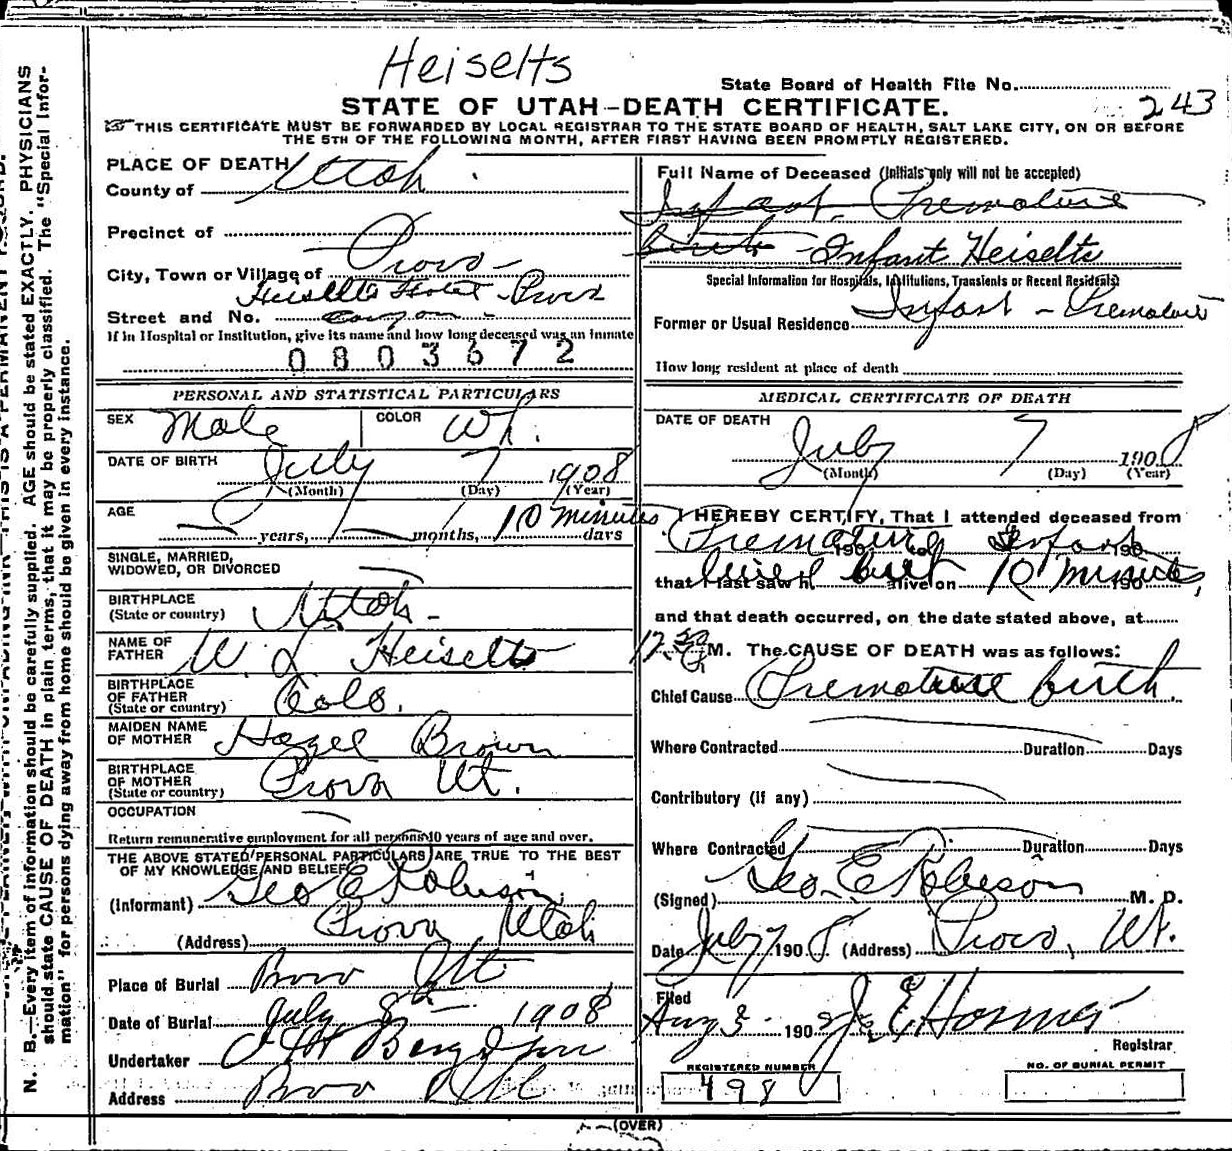 Heiselts
State Board of Health File No.
243
STATE OF UTAH—DEATH CERTIFICATE.
THIS CERTIFICATE MUST BE FORWARDED BY LOCAL REGISTRAR TO THE STATE BOARD OF HEALTH, SALT LAKE CITY, ON OR BEFORE
THE 5TH OF THE FOLLOWING MONTH, AFTER FIRST HAVING BEEN PROMPTLY REGISTERED.
PLACE OF DEATH
County of Utah
Precinct of
City, Town or Village of Provo
Heiselts Hotel - Provo
Street and No. Canyon
If in Hospital or Institution, give its name and how long deceased was an inmate
0803672
Full Name of Deceased (Initials only will not be accepted)
Infant Premature
birth - Infant Heiselts
Special Information for Hospitals, Institutions, Transients or Recent Residents
Former or Usual Residence Infant - Premature
How long resident at place of death
PERSONAL AND STATISTICAL PARTICULARS
SEX Male COLOR Wh.
DATE OF BIRTH July 7 1908
(Month) (Day) (Year)
AGE years, months, 10 minutes days
SINGLE, MARRIED,
WIDOWED, OR DIVORCED
BIRTHPLACE
(State or country) Utah -
NAME OF
FATHER W L Heiselts
BIRTHPLACE
OF FATHER
(State or country) Colo.
MAIDEN NAME
OF MOTHER Hazel Brown
BIRTHPLACE
OF MOTHER
(State or country) Provo Ut.
OCCUPATION
Return remunerative employment for all persons 10 years of age and over.
THE ABOVE STATED PERSONAL PARTICULARS ARE TRUE TO THE BEST
OF MY KNOWLEDGE AND BELIEF
(Informant) Geo E Robison
(Address) Provo Utah
Place of Burial Provo Ut
Date of Burial July 8th 1908
Undertaker Berg & Son
Address Provo Ut
MEDICAL CERTIFICATE OF DEATH
DATE OF DEATH
July 7 1908
(Month) (Day) (Year)
I HEREBY CERTIFY, That I attended deceased from
Premature Infant
that I last saw h alive on 190
lived but 10 minutes,
and that death occurred, on the date stated above, at
12.30 M. The CAUSE OF DEATH was as follows:
Chief Cause Premature birth.
Where Contracted Duration Days
Contributory (if any)
Where Contracted Duration Days
(Signed) Geo. E Robison M. D.
Date July 7 1908. (Address) Provo, Ut.
Filed
Aug 3 - 1908 Registrar
REGISTERED NUMBER
498
NO. OF BURIAL PERMIT
(OVER)
N. B.—Every item of information should be carefully supplied. AGE should be stated EXACTLY. PHYSICIANS
should state CAUSE OF DEATH in plain terms, that it may be properly classified. The "Special Infor-
mation" for persons dying away from home should be given in every instance.